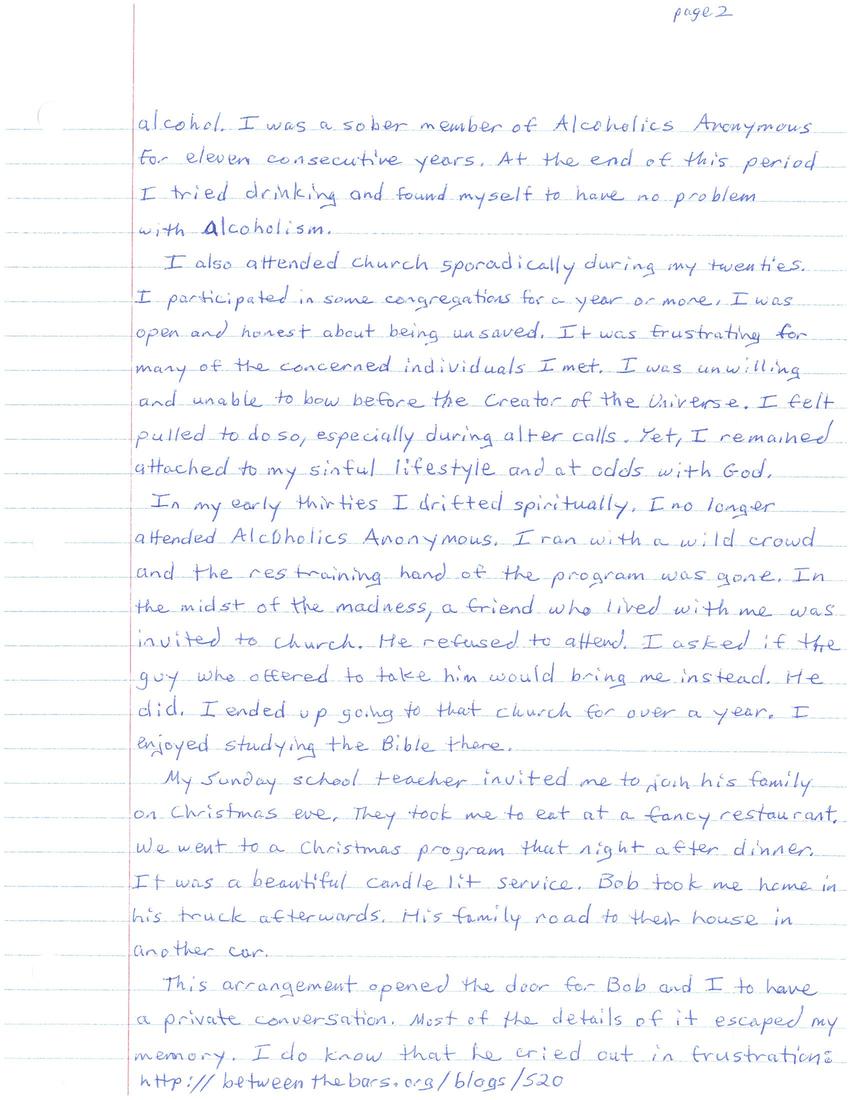 page 2
alcohol. I was a sober member of Alcoholics Anonymous
for eleven consecutive years. At the end of this period
I tried drinking and found myself to have no problem
with Alcoholism.
I also attended church sporadically during my twenties.
I participated in some congregations for a year or more. I was
open and honest about being unsaved. It was frustrating for
many of the concerned individuals I met. I was unwilling
and unable to bow before the Creator of the Universe. I felt
pulled to do so, especially during alter calls. Yet, I remained
attached to my sinful lifestyle and at odds with God.
In my early thirties I drifted spiritually. I no longer
attended Alcoholics Anonymous. I ran with a wild crowd
and the restraining hand of the program was gone. In
the midst of the madness, a friend who lived with me was
invited to church. He refused to attend. I asked if the
guy who offered to take him would bring me instead. He
did. I ended up going to that church for over a year. I
enjoyed studying the Bible there.
My Sunday school teacher invited me to join his family
on Christmas eve. They took me to eat at a fancy restaurant.
We went to a Christmas program that night after dinner.
It was a beautiful candle lit service. Bob took me home in
his truck afterwards. His family road to their house in
another car.
This arrangement opened the door for Bob and I to have
a private conversation. Most of the details of it escaped my
memory. I do know that he cried out in frustration:
http://betweenthebars.org/blogs/520